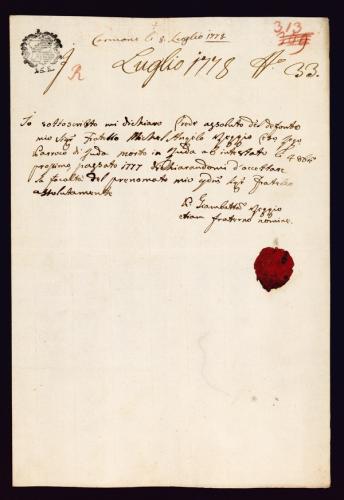 Cormons li 8. Luglio 1778
313
309
R
Luglio 1778 No. 33.
Io sottoscritto mi dichiaro Erede assoluto del defonto
mio Sigr Fratello Michel Angelo
morto in ab intestato li
prossimo passato 1777 dichiarandomi d'accettare
la facoltà del prenomato mio Sigr Fratello
assolutamente
P. Giambattista
etiam fraterno nomine